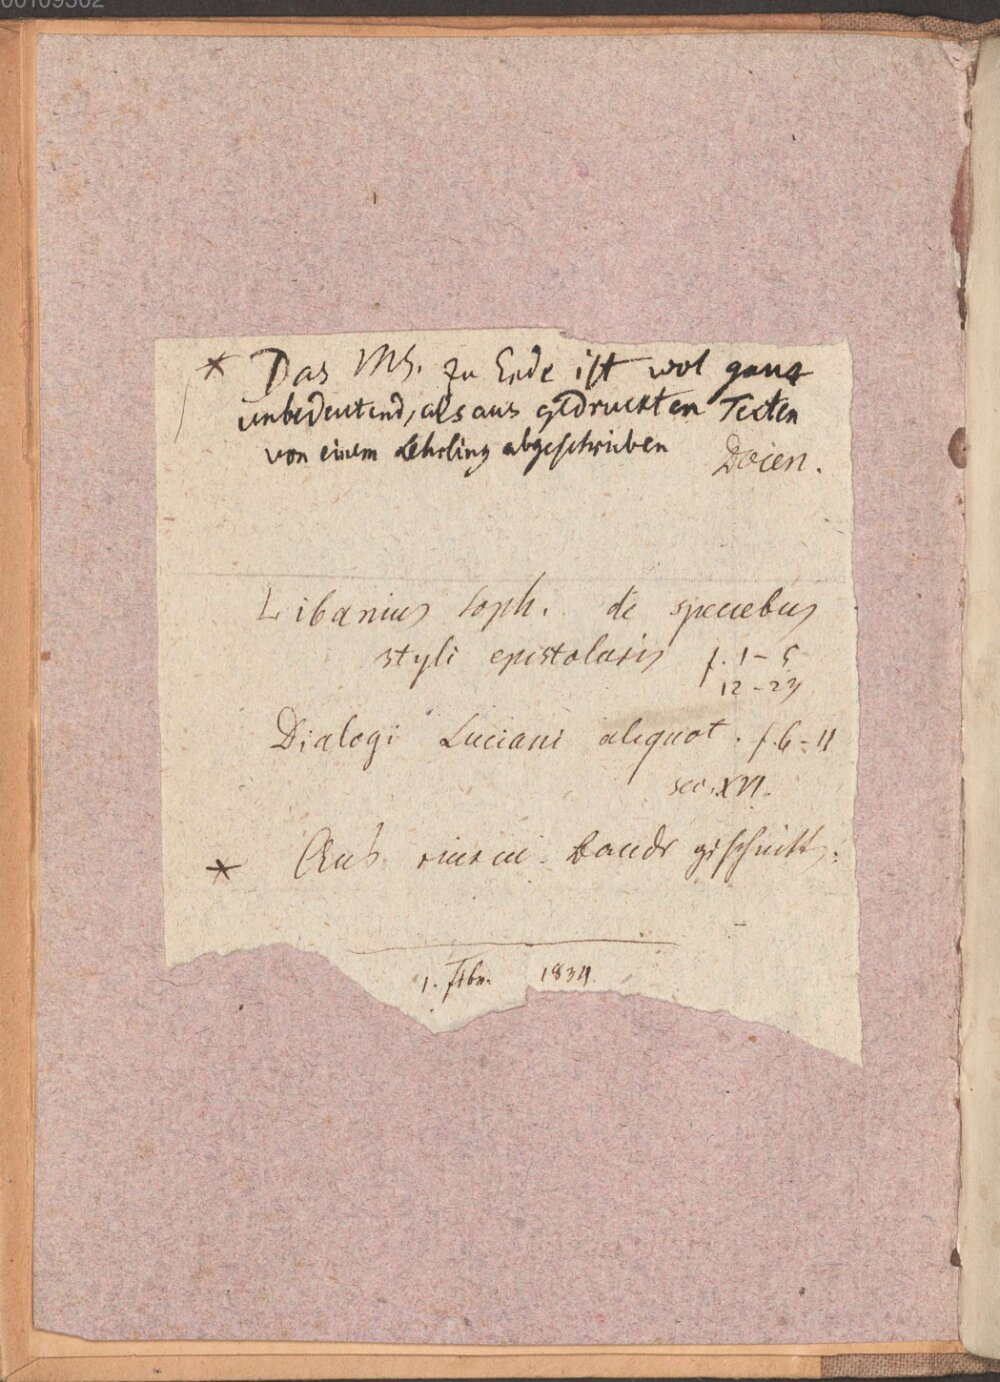 00109302
* Das MS. zu Ende ist wol ganz
unbedeutend, als aus gedruckten Texten
von einem Lehrling abgeschrieben
Docen.
Libanius Soph. de speciebus
styli epistolaris f. 1-5
12-23
Dialogi Luciani aliquot. f. 6-11
sec. XVI.
* Aus einem Bande geschnitt.
1. Febr. 1834